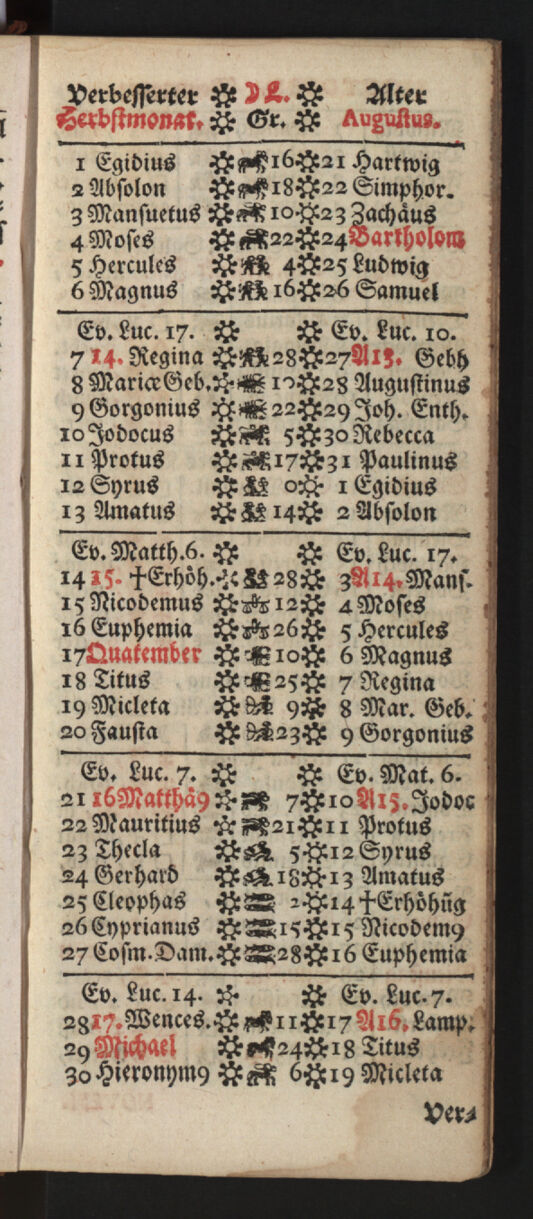 Verbesserter D L. Alter
Herbstmonat. Gr. Augustus.
1 Egidius 16 21 Hartwig
2 Absolon 18 22 Simphor.
3 Mansuetus 10 23 Zachäus
4 Moses 22 24 Bartholom
5 Hercules 4 25 Ludwig
6 Magnus 16 26 Samuel
Ev. Luc. 17. Ev. Luc. 10.
7 14. Regina 28 27 A13. Gebh
8 Mariæ Geb. 10 28 Augustinus
9 Gorgonius 22 29 Joh. Enth.
10 Jodocus 5 30 Rebecca
11 Protus 17 31 Paulinus
12 Syrus 0 1 Egidius
13 Amatus 14 2 Absolon
Ev. Matth. 6. Ev. Luc. 17.
14 15. †Erhöh. 28 3 A14. Mans.
15 Nicodemus 12 4 Moses
16 Euphemia 26 5 Hercules
17 Quatember 10 6 Magnus
18 Titus 25 7 Regina
19 Micleta 9 8 Mar. Geb.
20 Fausta 23 9 Gorgonius
Ev. Luc. 7. Ev. Mat. 6.
21 16 Matthä9 7 10 A15. Jodoc
22 Mauritius 21 11 Protus
23 Thecla 5 12 Syrus
24 Gerhard 18 13 Amatus
25 Cleophas 2 14 †Erhöhūg
26 Cyprianus 15 15 Nicodem9
27 Cosm. Dam. 28 16 Euphemia
Ev. Luc. 14. Ev. Luc. 7.
28 17. Wences. 11 17 A16. Lamp.
29 Michael 24 18 Titus
30 Hieronym9 6 19 Micleta
Ver⸗